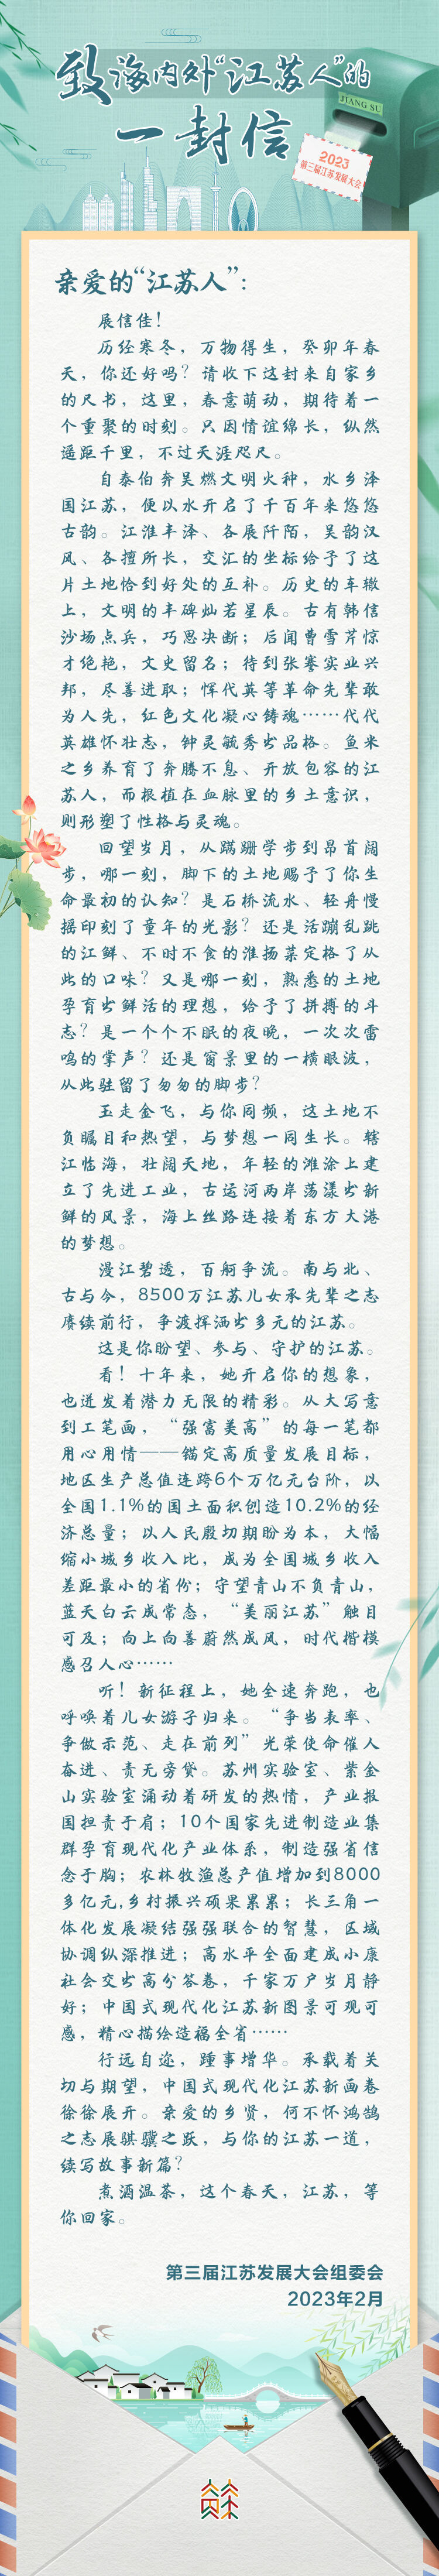 致海内外“江苏人”的
一封信
JIANG SU
2023
第三届江苏发展大会
亲爱的“江苏人”：
展信佳！
历经寒冬，万物得生，癸卯年春
天，你还好吗？请收下这封来自家乡
的尺书，这里，春意萌动，期待着一
个重聚的时刻。只因情谊绵长，纵然
遥距千里，不过天涯咫尺。
自泰伯奔吴燃文明火种，水乡泽
国江苏，便以水开启了千百年来悠悠
古韵。江淮丰泽、各展阡陌，吴韵汉
风、各擅所长，交汇的坐标给予了这
片土地恰到好处的互补。历史的车辙
上，文明的丰碑灿若星辰。古有韩信
沙场点兵，巧思决断；后闻曹雪芹惊
才绝艳，文史留名；待到张謇实业兴
邦，尽善进取；恽代英等革命先辈敢
为人先，红色文化凝心铸魂……代代
英雄怀壮志，钟灵毓秀出品格。鱼米
之乡养育了奔腾不息、开放包容的江
苏人，而根植在血脉里的乡土意识，
则形塑了性格与灵魂。
回望岁月，从蹒跚学步到昂首阔
步，哪一刻，脚下的土地赐予了你生
命最初的认知？是石桥流水、轻舟慢
摇印刻了童年的光影？还是活蹦乱跳
的江鲜、不时不食的淮扬菜定格了从
此的口味？又是哪一刻，熟悉的土地
孕育出鲜活的理想，给予了拼搏的斗
志？是一个个不眠的夜晚，一次次雷
鸣的掌声？还是窗景里的一横眼波，
从此驻留了匆匆的脚步？
玉走金飞，与你同频，这土地不
负瞩目和热望，与梦想一同生长。辖
江临海，壮阔天地，年轻的滩涂上建
立了先进工业，古运河两岸荡漾出新
鲜的风景，海上丝路连接着东方大港
的梦想。
漫江碧透，百舸争流。南与北、
古与今，8500万江苏儿女承先辈之志
赓续前行，争渡挥洒出多元的江苏。
这是你盼望、参与、守护的江苏。
看！十年来，她开启你的想象，
也迸发着潜力无限的精彩。从大写意
到工笔画，“强富美高”的每一笔都
用心用情——锚定高质量发展目标，
地区生产总值连跨6个万亿元台阶，以
全国1.1%的国土面积创造10.2%的经
济总量；以人民殷切期盼为本，大幅
缩小城乡收入比，成为全国城乡收入
差距最小的省份；守望青山不负青山，
蓝天白云成常态，“美丽江苏”触目
可及；向上向善蔚然成风，时代楷模
感召人心……
听！新征程上，她全速奔跑，也
呼唤着儿女游子归来。“争当表率、
争做示范、走在前列”光荣使命催人
奋进、责无旁贷。苏州实验室、紫金
山实验室涌动着研发的热情，产业报
国担责于肩；10个国家先进制造业集
群孕育现代化产业体系，制造强省信
念于胸；农林牧渔总产值增加到8000
多亿元，乡村振兴硕果累累；长三角一
体化发展凝结强强联合的智慧，区域
协调纵深推进；高水平全面建成小康
社会交出高分答卷，千家万户岁月静
好；中国式现代化江苏新图景可观可
感，精心描绘造福全省……
行远自迩，踵事增华。承载着关
切与期望，中国式现代化江苏新画卷
徐徐展开。亲爱的乡贤，何不怀鸿鹄
之志展骐骥之跃，与你的江苏一道，
续写故事新篇？
煮酒温茶，这个春天，江苏，等
你回家。
第三届江苏发展大会组委会
2023年2月